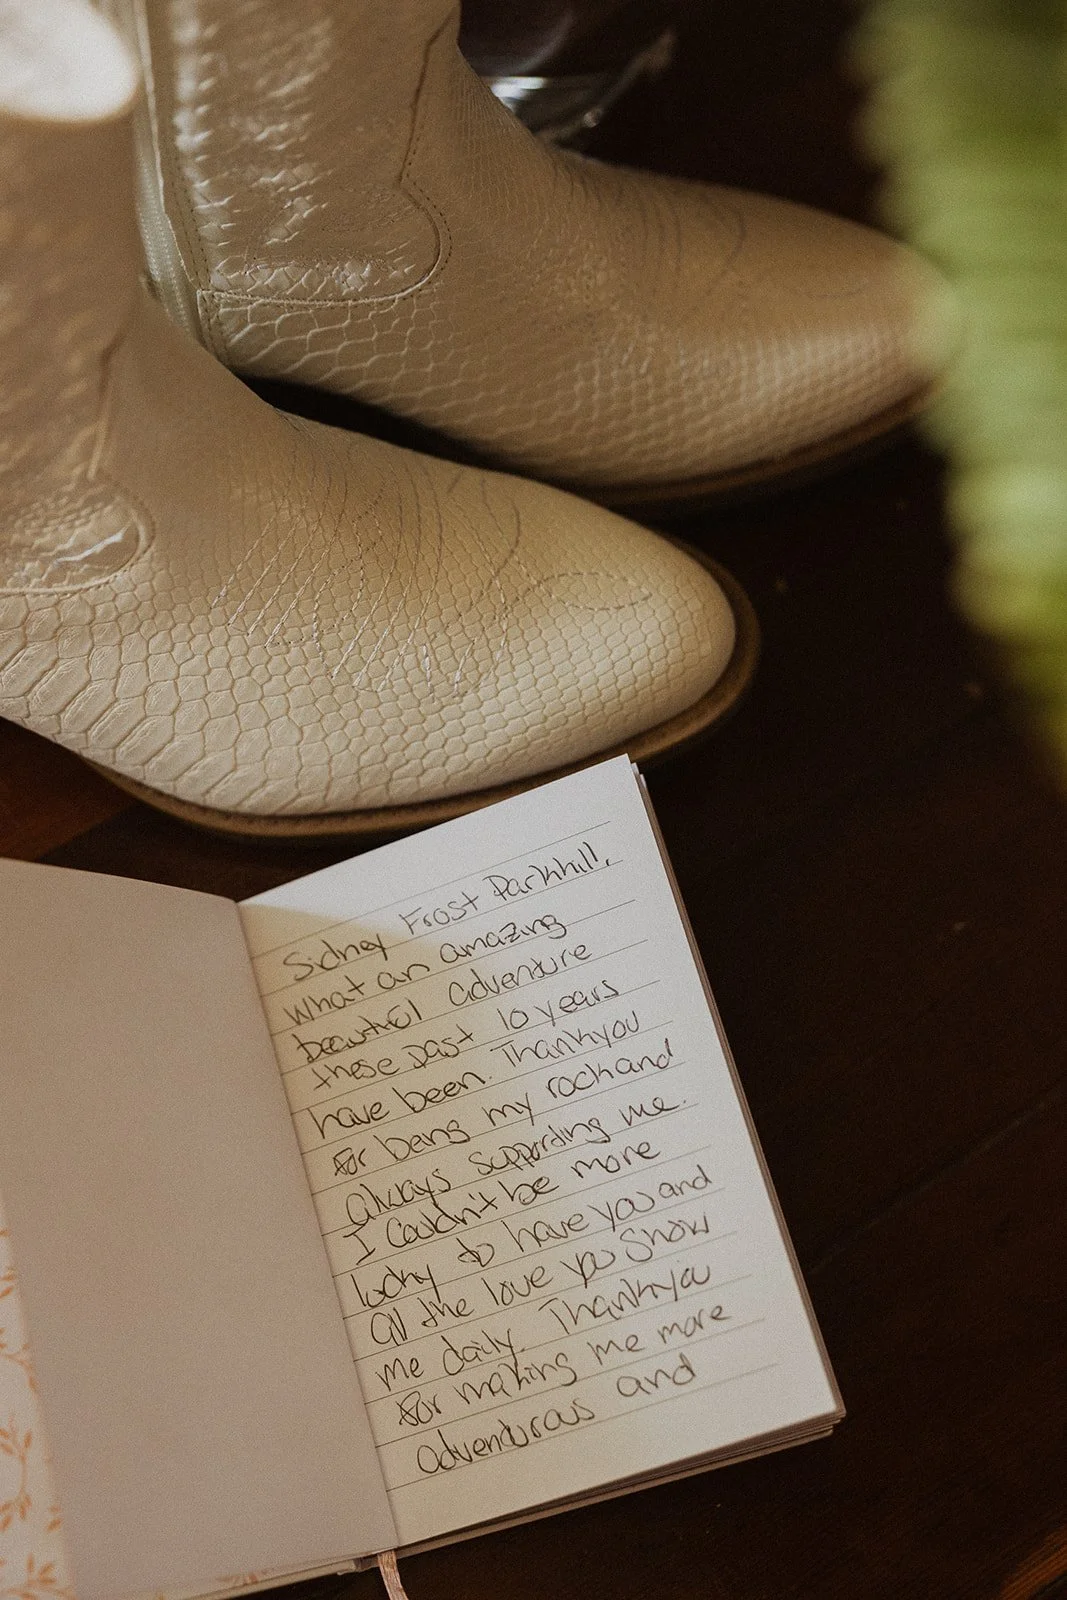 Sidney Frost Parkhill,
What an amazing
beautiful adventure
these past 10 years
have been. Thankyou
for being my rock and
always supporting me.
I Couldn't be more
lucky to have you and
all the love you Show
me daily. Thankyou
for making me more
adventurous and